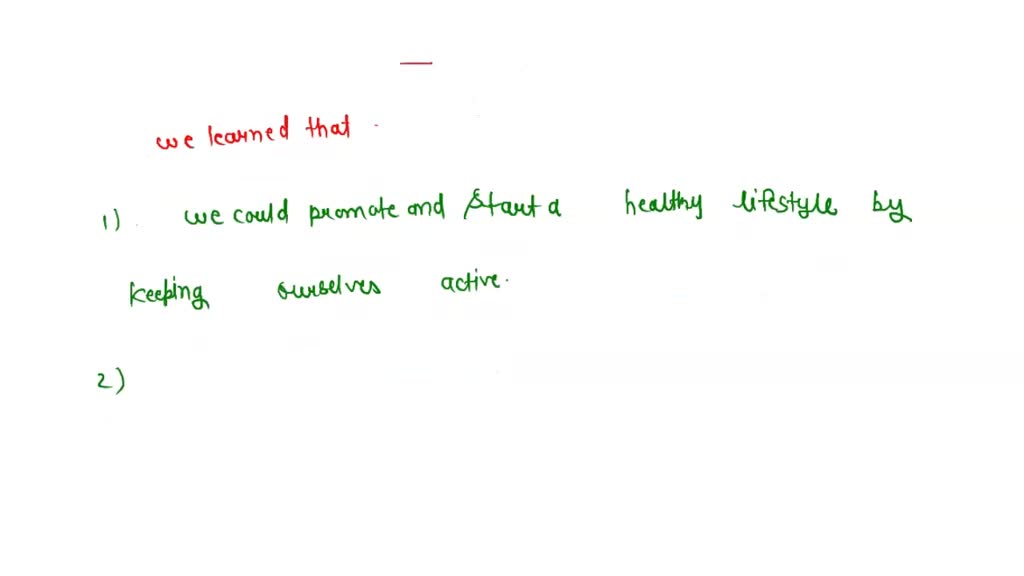 we learned that
1) we could promote and start a healthy lifestyle by
keeping ourselves active.
2)